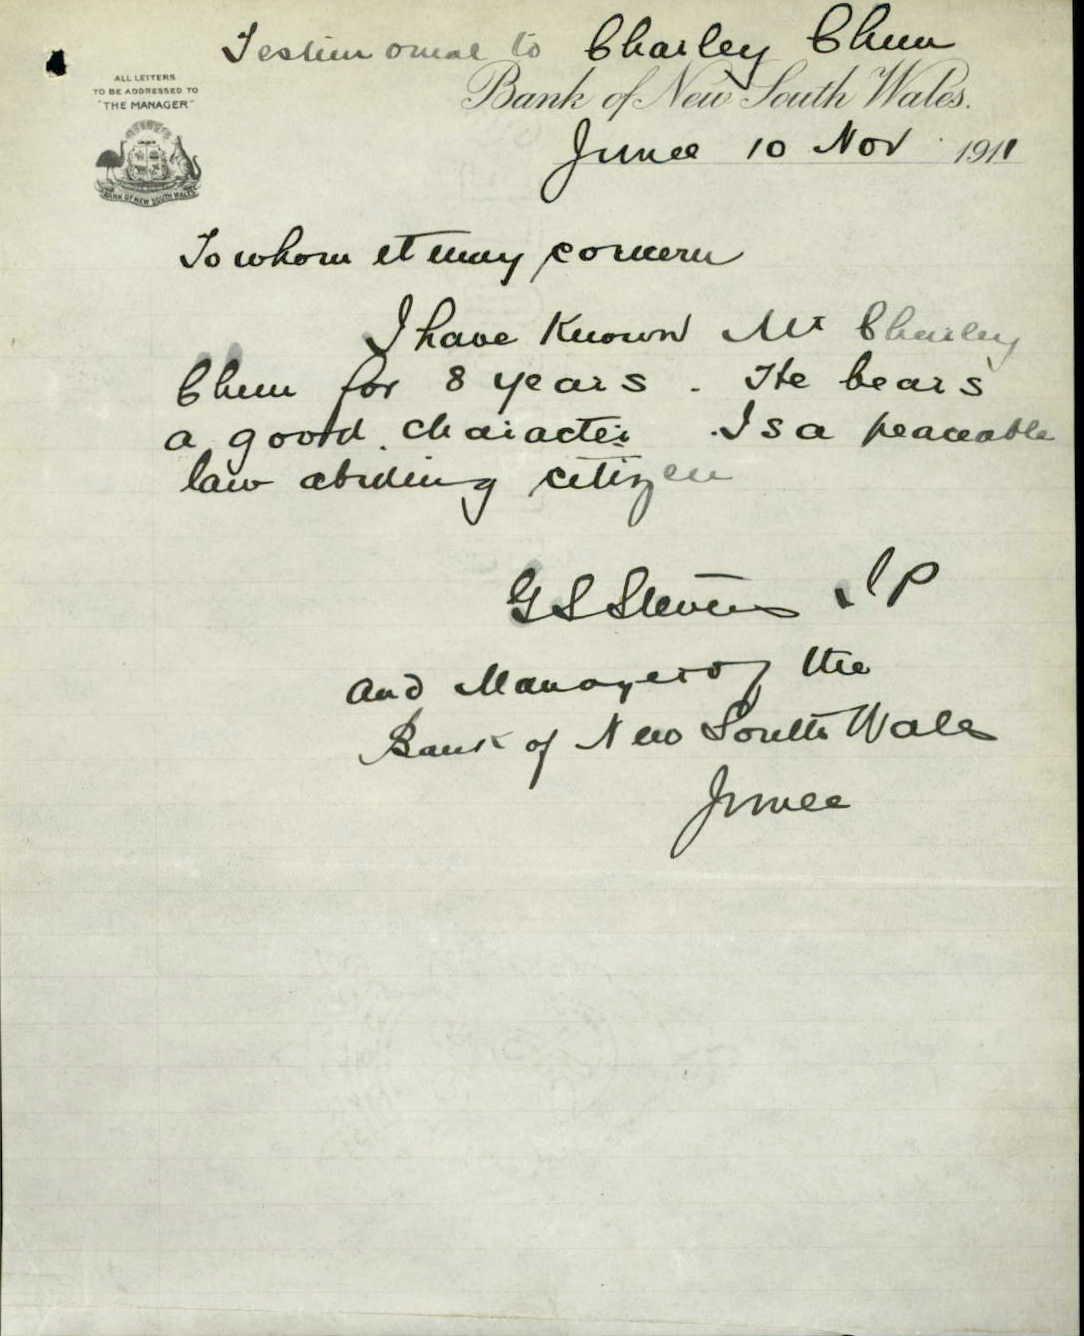 Testimonial to Charley Chum
ALL LETTERS
TO BE ADDRESSED TO
"THE MANAGER"
Bank of New South Wales.
BANK OF NEW SOUTH WALES
Junee 10 Nov 1911
To whom it may concern
I have known Mr Charley
Chum for 8 years. He bears
a good character. Is a peaceable
law abiding citizen
G S Stevens JP
and Manager of the
Bank of New South Wales
Junee